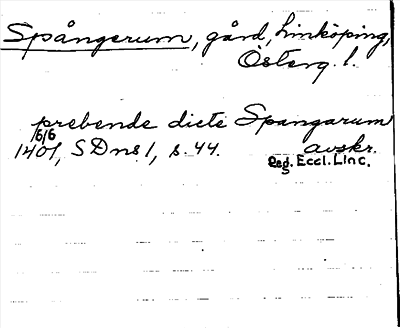 Spångerum, gård, Linköping,
Österg. l.
prebende dicte Spangarum
6/6
1401, SDns 1, s. 44. avskr.
Reg. Eccl. Linc.